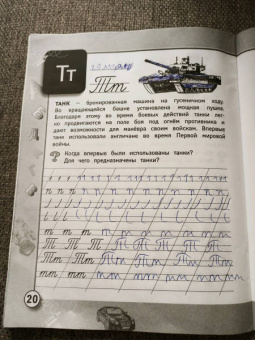 Тт
Тт
ТАНК – бронированная машина на гусеничном ходу.
Во вращающейся башне установлена мощная пушка.
Благодаря этому во время боевых действий танки лег-
ко продвигаются на поле боя под огнём противника и
дают возможности для манёвра своим войскам. Впервые
танк использовали англичане во время Первой мировой
войны.
Когда впервые были использованы танки?
Для чего предназначены танки?
т т т т т т т т т
Т Т Т Т Т Т Т Т
Тт Тт Тт Тт Тт Тт
тт тт тт тт тт тт
20